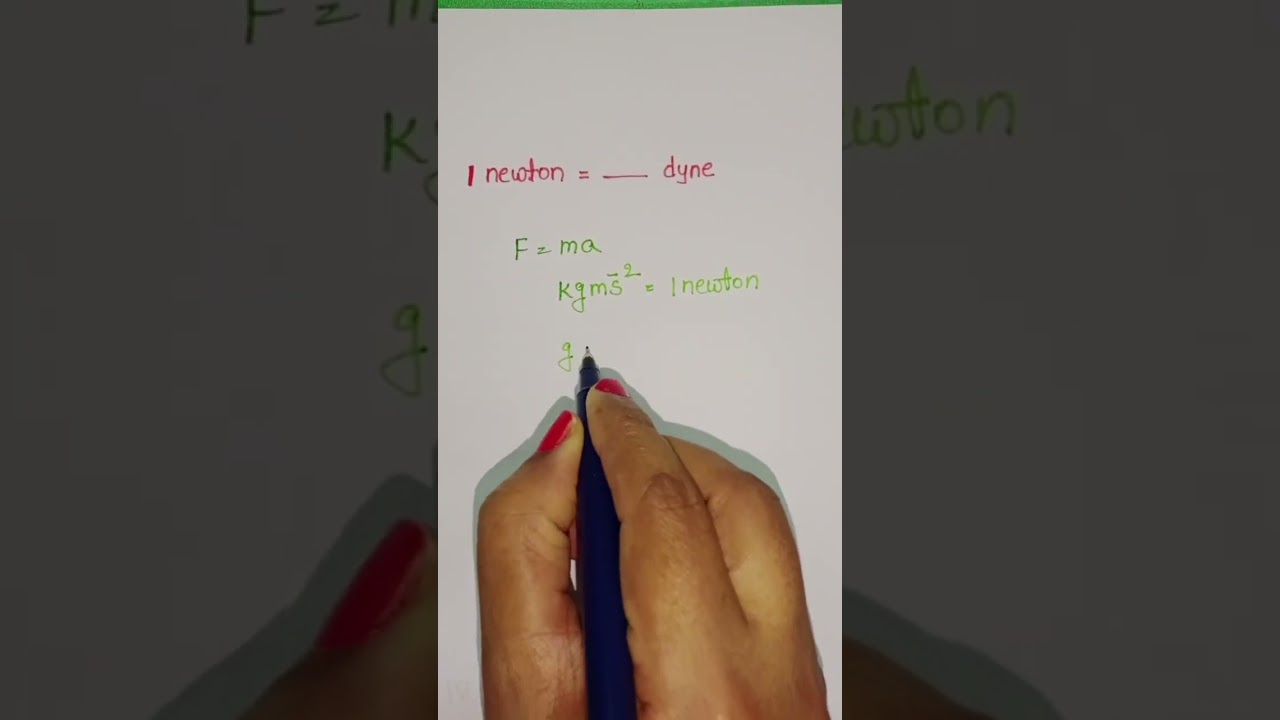 1 newton = __ dyne
F = ma
kgms⁻² = 1 newton
g